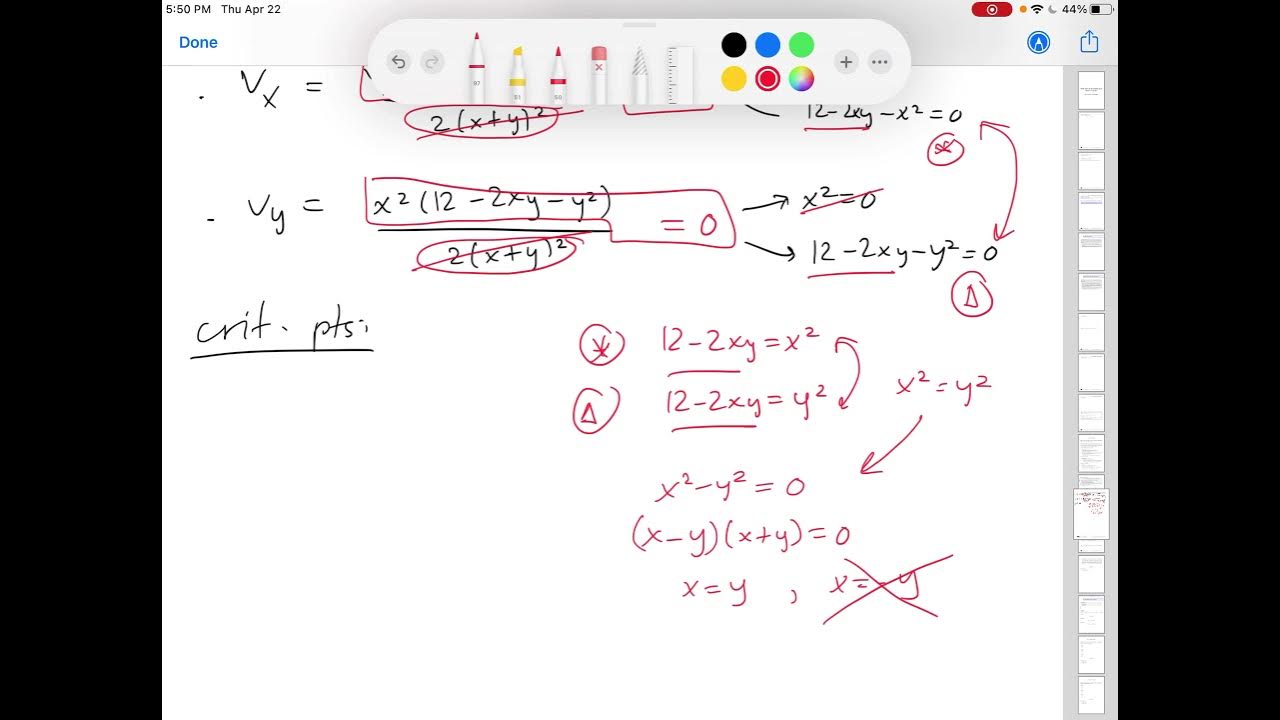 5:50 PM Thu Apr 22
44%
Done
97
51
50
. Vx =
2(x+y)²
12-2xy-x²=0
*
. Vy = x²(12-2xy-y²) = 0
2(x+y)²
→ x²=0
→ 12-2xy-y²=0
Δ
crit. pts:
* 12-2xy=x²
Δ 12-2xy=y²
x²=y²
x²-y²=0
(x-y)(x+y)=0
x=y , x=-y